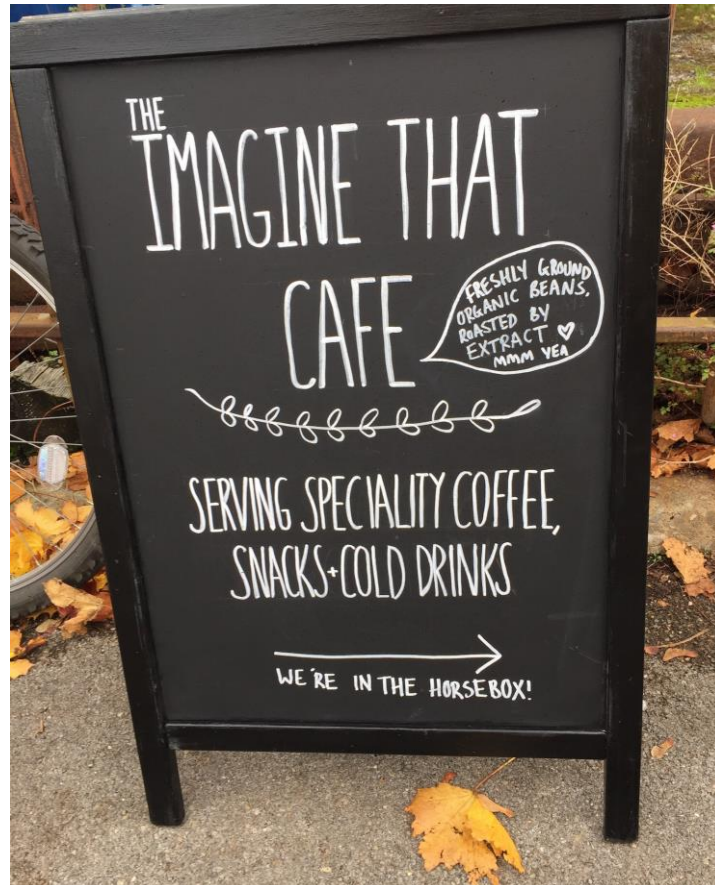 THE
IMAGINE THAT
CAFE
FRESHLY GROUND
ORGANIC BEANS,
ROASTED BY
EXTRACT ♡
MMM YEA
SERVING SPECIALITY COFFEE,
SNACKS+COLD DRINKS
WE'RE IN THE HORSEBOX!